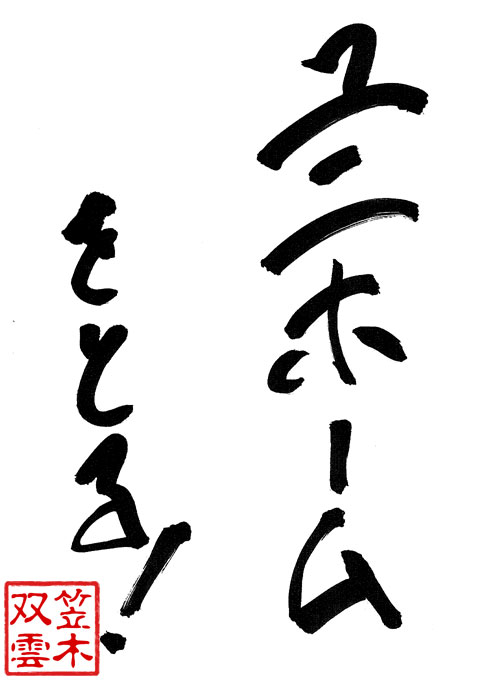 ユニホーム
をとる!
笠木
双雲